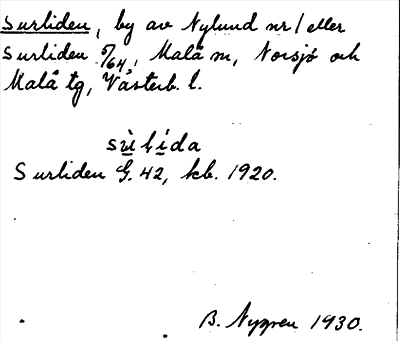 Surliden, by av Nylund nr 1 eller
Surliden 5/64, Malå m, Norsjö och
Malå tg, Västerb. l.
Surliden G. 42, kb. 1920.
B. Nygren 1930.